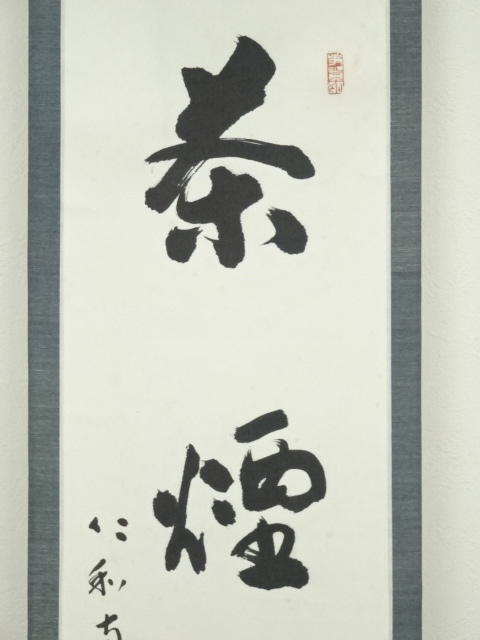 茶
煙
仁和寺